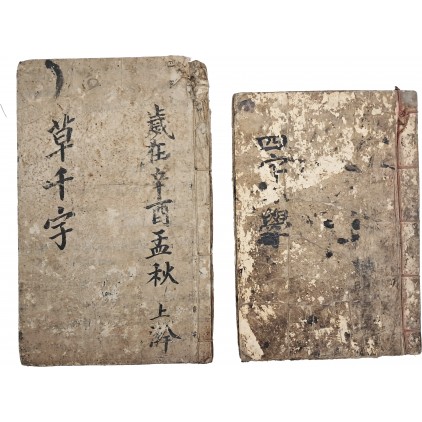 歲在辛酉孟秋 上澣
草千字
四字